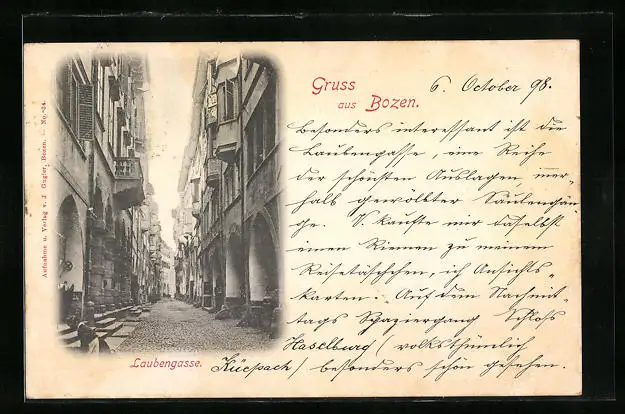 Gruss
aus Bozen.
6. October 98.
Besonders interessant ist die
Laubengasse, eine Reihe
der schönsten Auslagen inner-
halb gewölbter Säulengän-
ge. V. kaufte mir daselbst
einen Riemen zu meinem
Reisetäschchen, ich Ansichts-
karten. Auf dem Nachmit-
tags Spaziergang Schloss
Haselburg (volksthümlich
Küepach) besonders schön gesehen.
Laubengasse.
Aufnahme u. Verlag v. J. Gugler, Bozen. — No. 34.